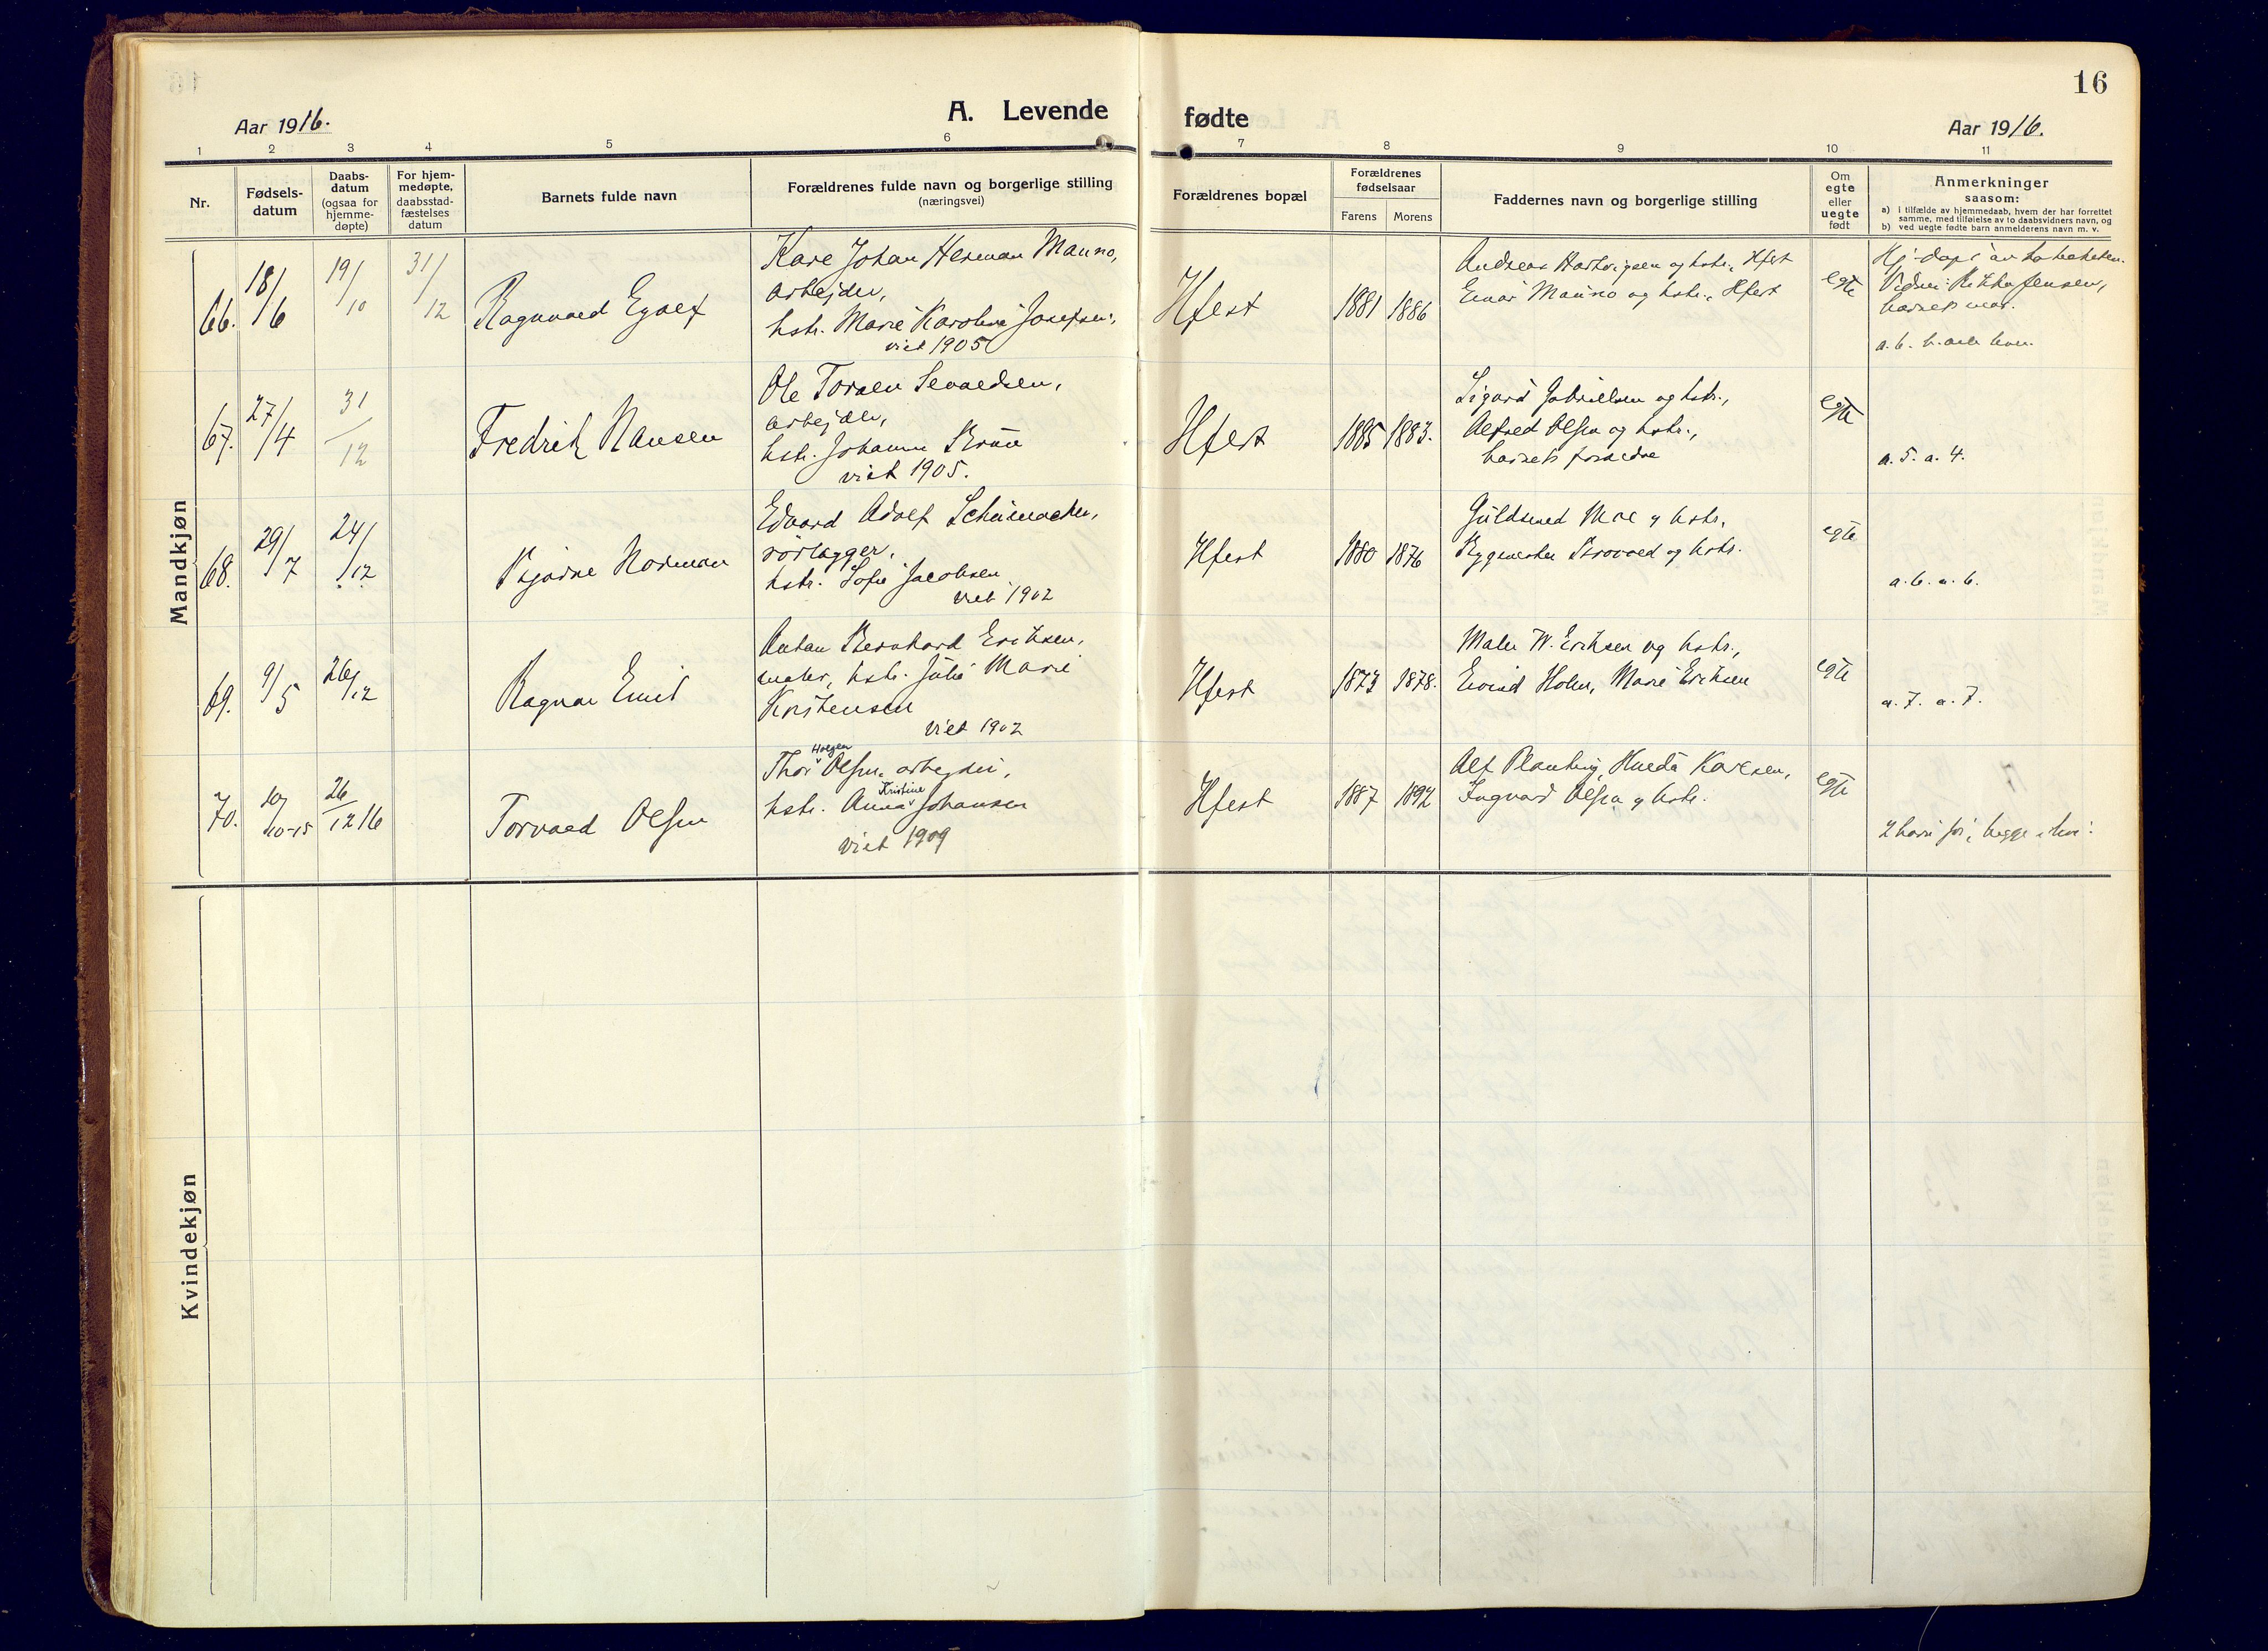 16
A. Levende fødte
Aar 1916.
Aar 1916.
1 2 3 4 5 6 7 8 9 10 11
Nr.
Fødsels-
datum
Daabs-
datum
(ogsaa for
hjemme-
døpte)
For hjem-
medøpte,
daabsstad-
fæstelses
datum
Barnets fulde navn
Forældrenes fulde navn og borgerlige stilling
(næringsvei)
Forældrenes bopæl
Forældrenes
fødselsaar
Farens Morens
Faddernes navn og borgerlige stilling
Om
egte
eller
uegte
født
Anmerkninger
saasom:
a) i tilfælde av hjemmedaab, hvem der har forrettet
samme, med tilføielse av to daabsvidners navn, og
b) ved uegte fødte barn anmelderens navn m. v.
Mandkjøn
66.
18/6
19/10
31/12
Ragnvald Egolf
Karl Johan Herman Manno,
arbejder,
hstr. Marie Karoline Josefsen,
viet 1905
Hfest
1881 1886
Andreas Hartvigsen og hstr., Hfest
Einar Manno og hstr., Hfest
egte
Vidner: Rikka Jensen,
67.
27/4
31/12
Fredrik Hansen
Ole Torsen Sevaldsen,
arbejder,
hstr. Johanne Bruun
viet 1905.
Hfest
1885 1883.
Sigurd Gabrielsen og hstr.,
Alfred Olsen og hstr.,
barnets forældre
egte
a. 5. a. 4.
68.
29/7
24/12
Bjarne Norman
Edvard Adolf Schumacher,
rørlægger,
hstr. Sofie Jacobsen
viet 1902
Hfest
1880 1876
Guldsmed Moe og hstr.
Bygmester Brovold og hstr.
egte
a. 6. a. 6.
69.
9/5
26/12
Ragnar Emil
Anton Bernhard Eriksen,
maler, hstr. Julie Marie
Kristensen
viet 1902
Hfest
1873 1878.
Maler W. Eriksen og hstr.,
Eivind Holm, Marie Eriksen
egte
a. 7. a. 7.
70.
10/10-15
26/12 16
Torvald Olsen
Thor Holger Olsen, arbeyder,
hstr. Anna Kristine Johansen
viet 1909
Hfest
1887 1892
Alf Planting, Hulda Karlsen,
Ingvard Olsen og hstr.
egte
2 barn før, begge i live.
Kvindekjøn